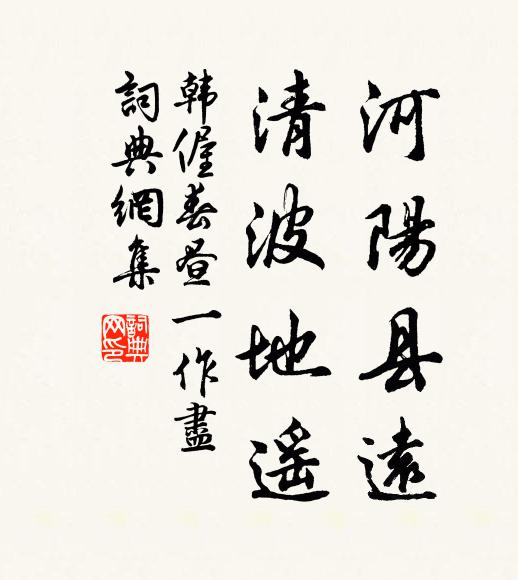 河陽县遠
清波地遥
韩偓春昼一作盡
詞典網集
詞典网印